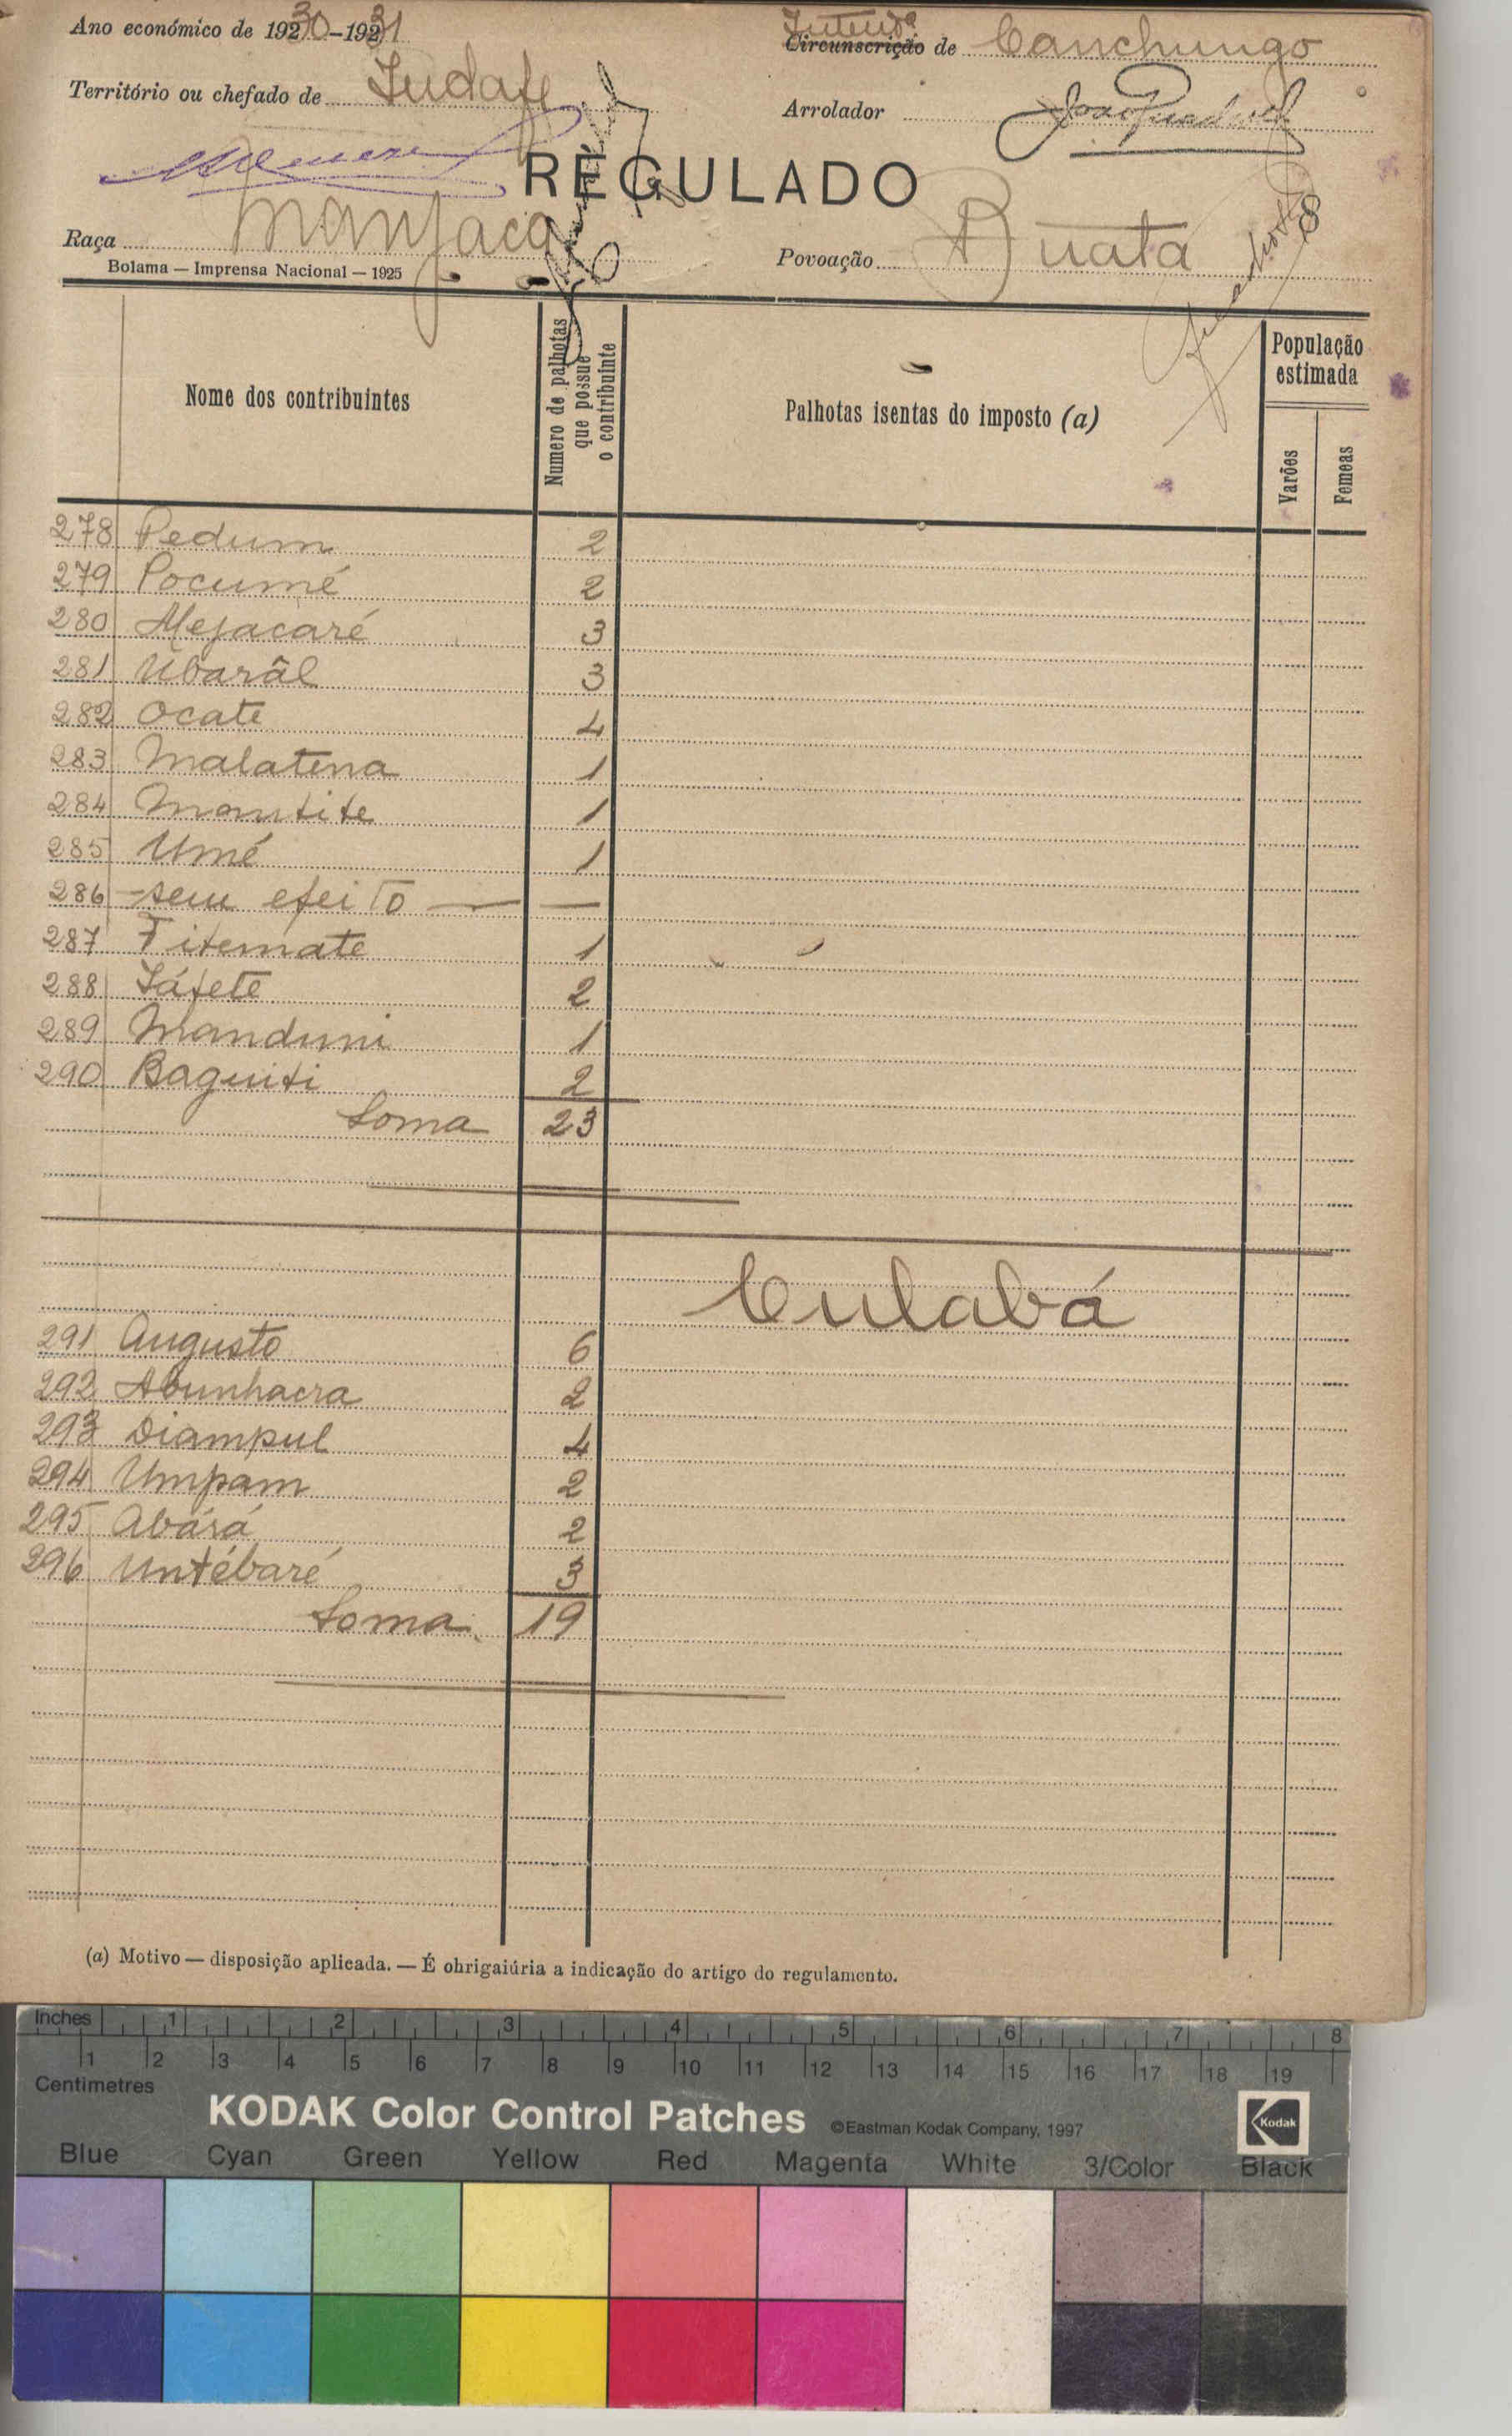 Ano económico de 1930-1931
Intend.ª Circunscrição de Canchungo
Território ou chefado de
Arrolador
RÈGULADO
Raça Manjaca
Povoação Buata
Bolama — Imprensa Nacional — 1925
8
Nome dos contribuintes
Numero de palhotas que possue o contribuinte
Palhotas isentas do imposto (a)
População estimada
Varões
Femeas
278 Pedum 2
279 Pocumé 2
280 Mejacaré 3
281 Ubarâl 3
282 Ocate 4
283 Malatena 1
284 Mantite 1
285 Umé 1
286 — sem efeito — —
287 Fitemate 1
288 2
289 Manduni 1
290 Baguiti 2
Soma 23
Culabá
291 Augusto 6
292 Abunhacra 2
293 Diampul 4
294 Umpam 2
295 Abárá 2
296 Untébaré 3
Soma 19
(a) Motivo — disposição aplicada. — É obrigaiúria a indicação do artigo do regulamento.
Inches 1 2 3 4 5 6 7 8
1 2 3 4 5 6 7 8 9 10 11 12 13 14 15 16 17 18 19
Centimetres
KODAK Color Control Patches ©Eastman Kodak Company, 1997
Kodak
Blue Cyan Green Yellow Red Magenta White 3/Color Black